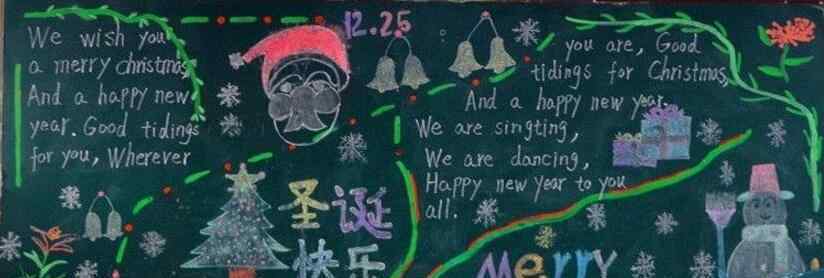 We wish you
a merry christmas
And a happy new
year. Good tidings
for you, Wherever
12.25
you are, Good
tidings for Christmas,
And a happy new year.
We are singting,
We are dancing,
Happy new year to you
all.
圣诞
快乐
Merry